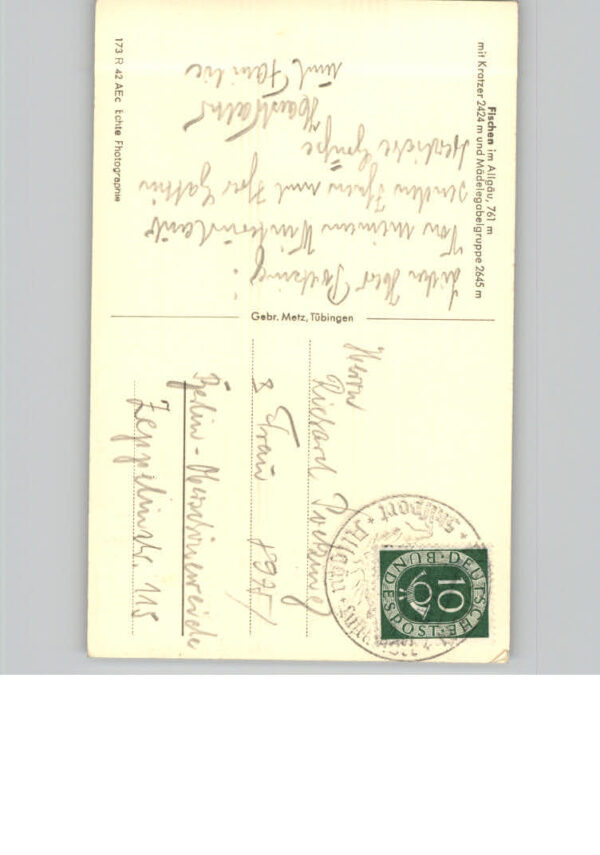 Fischen im Allgäu, 761 m
mit Kratzer 2424 m und Mädelegabelgruppe 2645 m
Lieber Herr Poetzing!
Von meinem Winterurlaub
senden Ihnen und Ihrer Gattin
Herzliche Grüße
und Familie
173 R 42 AEc Echte Photographie
Gebr. Metz, Tübingen
DEUTSCHE BUNDESPOST
10
Skisport Allgäu
Herrn
Richard Poetzing
& Frau
Berlin-Oberschöneweide
Zeppelinstr. 115